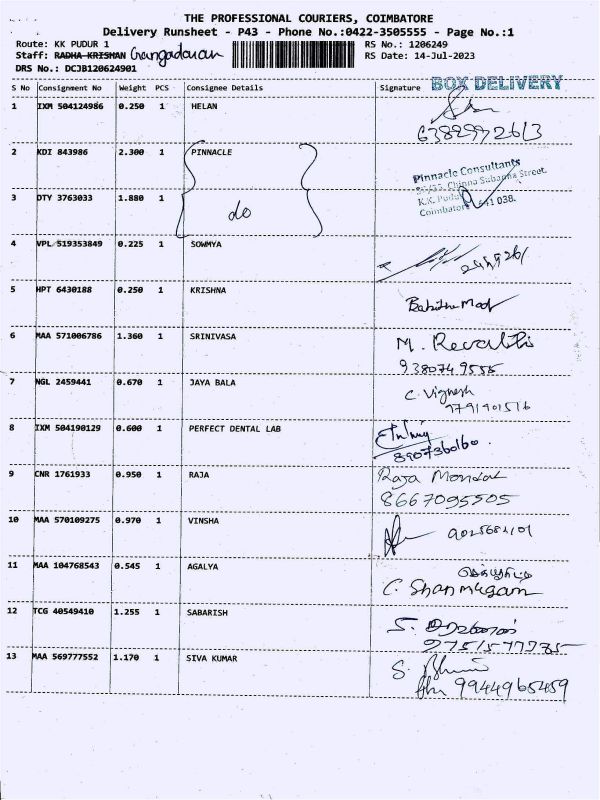 THE PROFESSIONAL COURIERS, COIMBATORE
Delivery Runsheet - P43 - Phone No.:0422-3505555 - Page No.:1
Route: KK PUDUR 1 RS No.: 1206249
Staff: RADHA KRISHAN RS Date: 14-Jul-2023
DRS No.: DCJB120624901
BOX DELIVERY
S No Consignment No Weight PCS Consignee Details Signature
1 IXM 504124986 0.250 1 HELAN
2 KDI 843986 2.300 1 PINNACLE
Pinnacle Consultants
Chinna Subanna Street.
3 DTY 3763033 1.880 1 do
K.K. Pudur
Coimbatore 641 038.
4 VPL 519353849 0.225 1 SOWMYA
5 HPT 6430188 0.250 1 KRISHNA
6 MAA 571006786 1.360 1 SRINIVASA M. Revathi
9380749555
7 NGL 2459441 0.670 1 JAYA BALA C. Vignesh
9791901516
8 IXM 504190129 0.600 1 PERFECT DENTAL LAB
8907360160.
9 CNR 1761933 0.950 1 RAJA Raja Mondal
8667095505
10 MAA 570109275 0.970 1 VINSHA
11 MAA 104768543 0.545 1 AGALYA
C. Shanmugam
12 TCG 40549410 1.255 1 SABARISH S.
13 MAA 569777552 1.170 1 SIVA KUMAR S.
9944965459